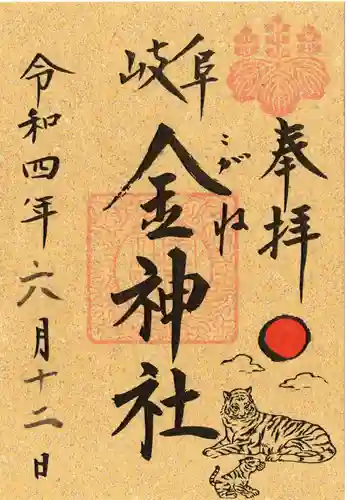 奉拝
岐阜
金神社
こがね
令和四年六月十二日